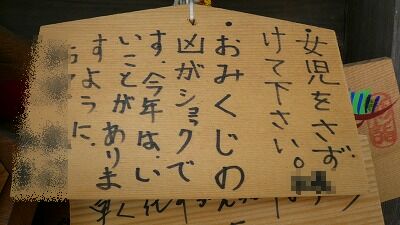 ・女児をさず
けて下さい。
・おみくじの
凶がショックで
す。今年は、い
いことがありま
すように、